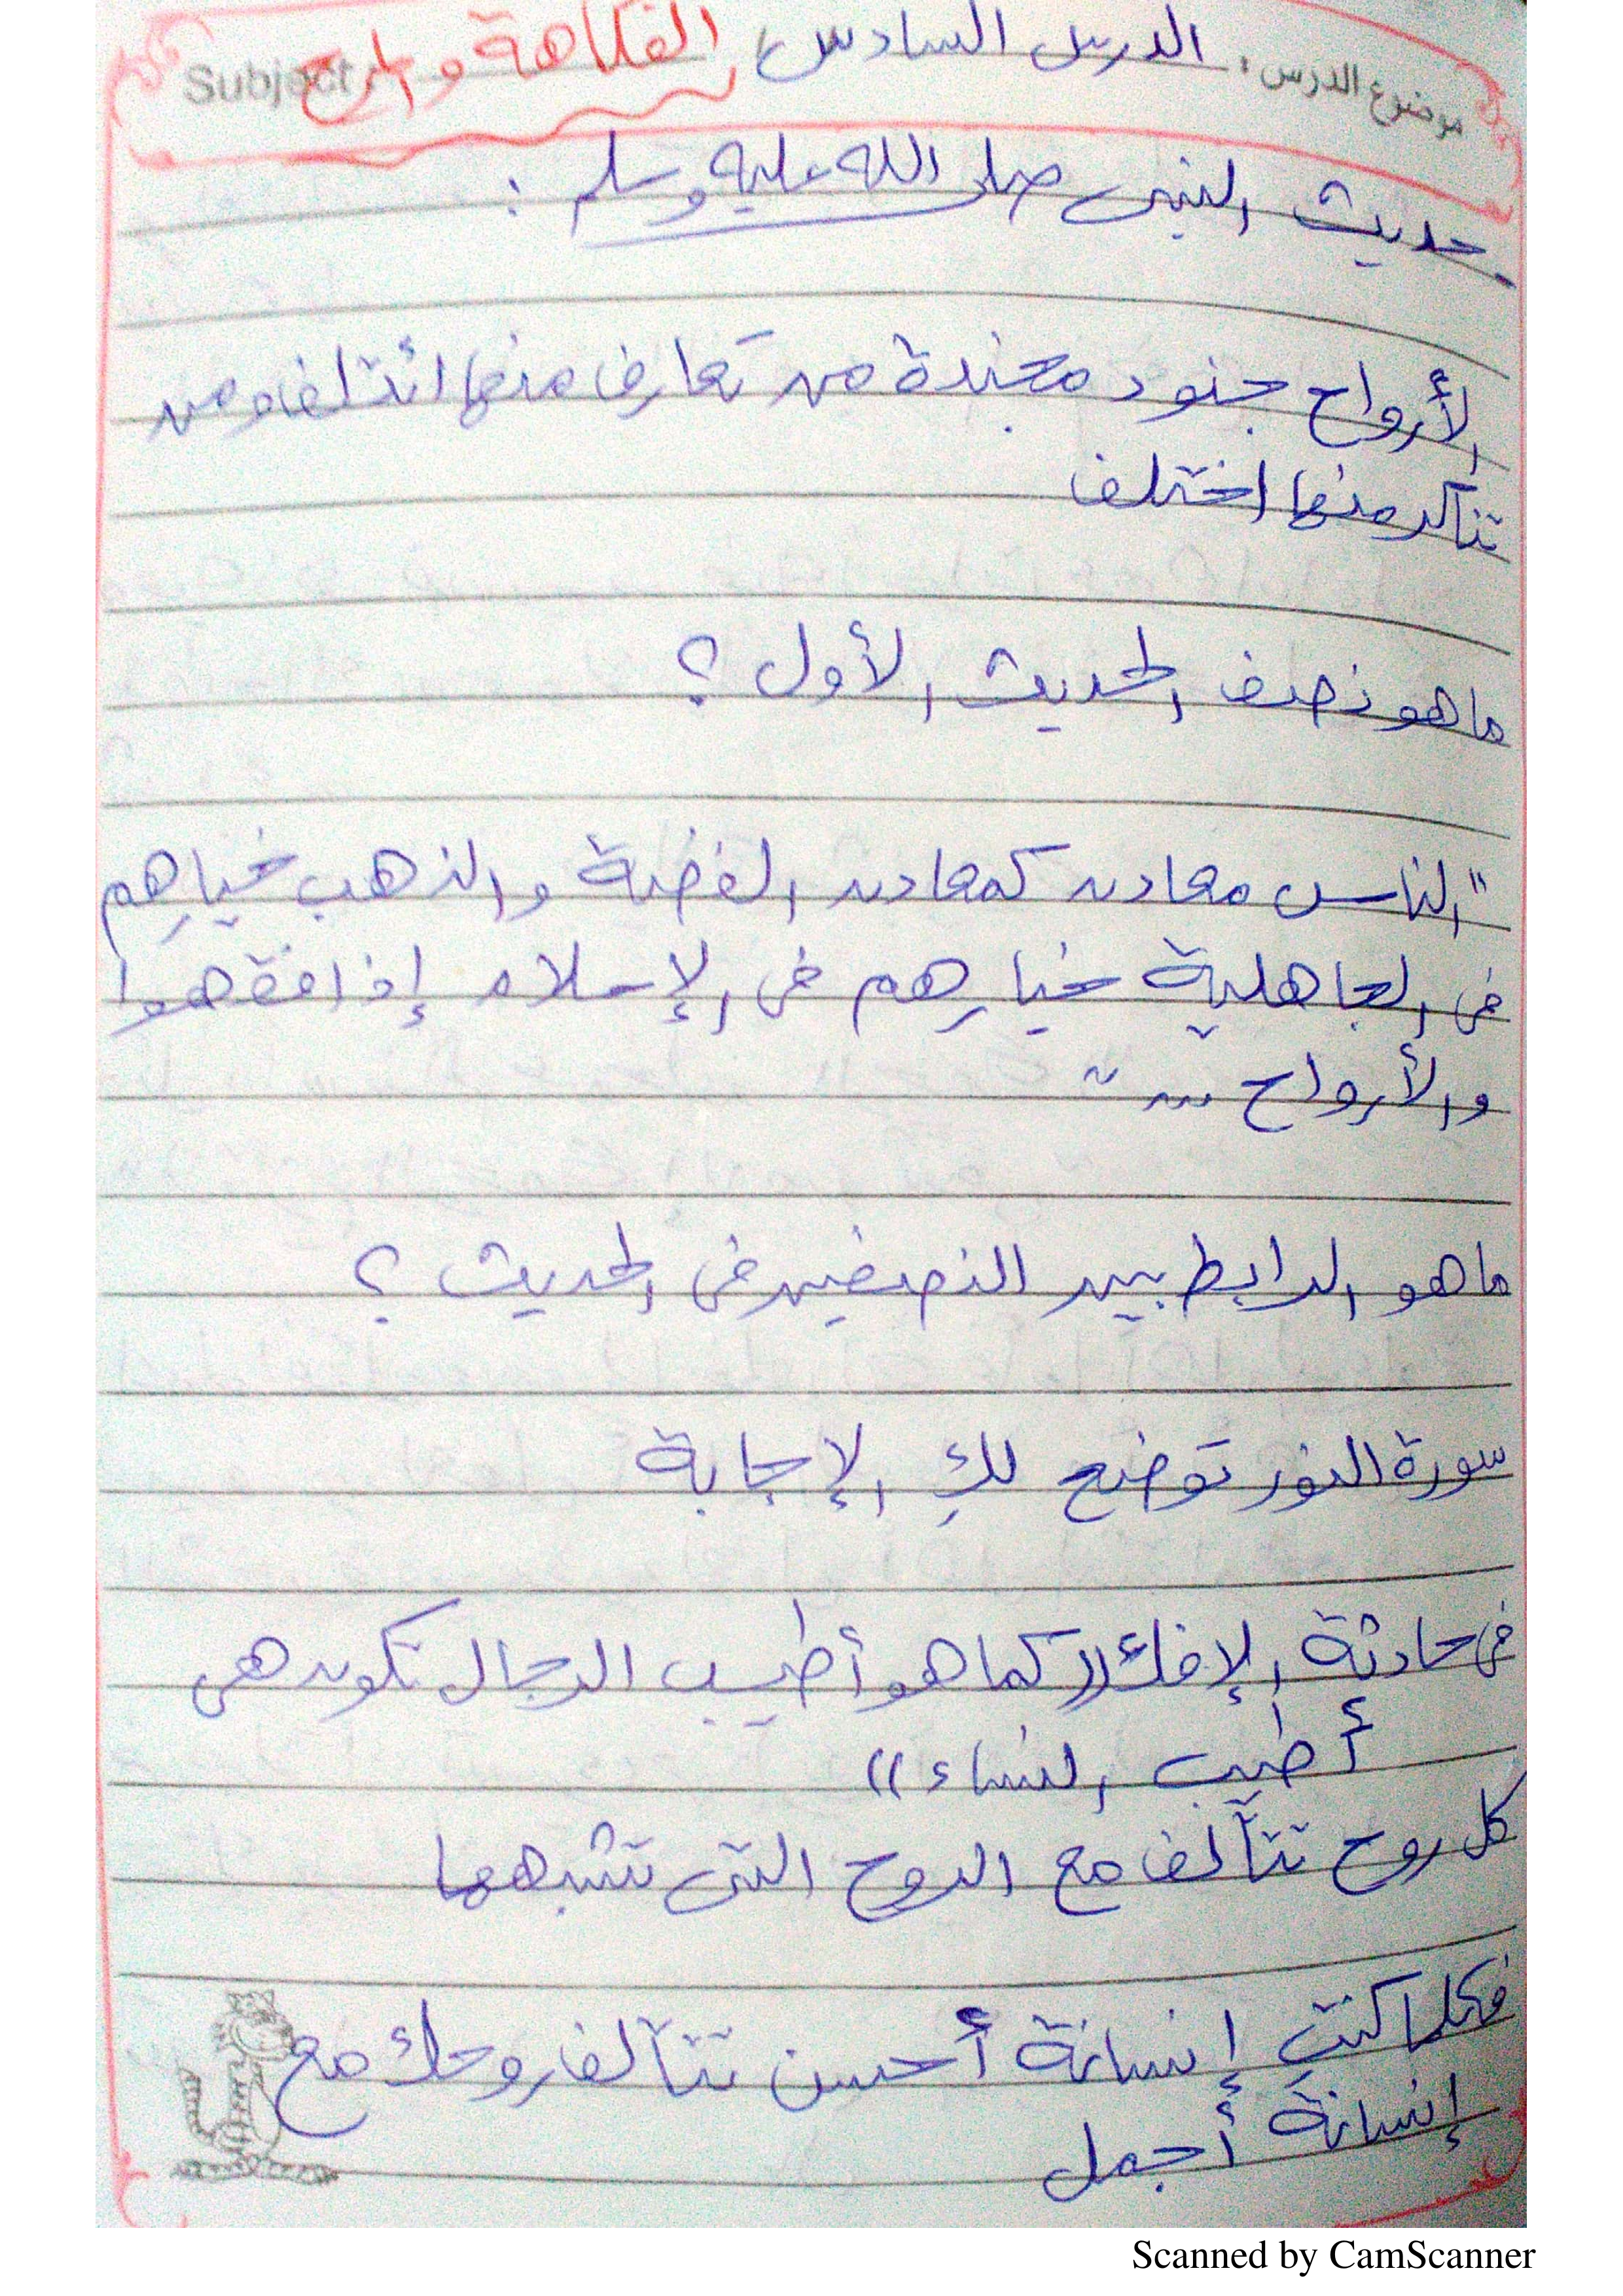 موضوع الدرس: الدرس السادس / الفكاهة والمرح Subject
حديث النبي صلى الله عليه وسلم :
الأرواح جنود مجندة من تعارف منها ائتلف ومن
تناكر منها اختلف
ما هو نصف الحديث الأول ؟
"الناس معادن كمعادن الفضة والذهب خيارهم
في الجاهلية خيارهم في الإسلام إذا فقهوا
والأرواح ... "
ما هو الرابط بين النصفين في الحديث ؟
سورة النور توضح لكِ الإجابة
في حادثة الإفك (( كما هو أطيب الرجال تكون هي
أطيب النساء ))
كل روح تتآلف مع الروح التي تشبهها
فكلما كنتِ إنسانة أحسن تتآلف روحك مع
إنسانة أجمل
Scanned by CamScanner